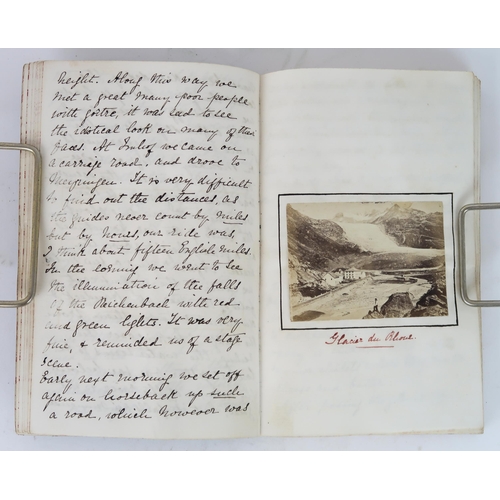 height. Along this way we
met a great many poor people
with goitre, it was sad to see
the idotical look on many of their
faces. At Imhof we came on
a carriage road, and drove to
Meyringen. It is very difficult
to find out the distances, as
the guides never count by miles
but by hours, our ride was,
I think about fifteen English miles.
In the evening we went to see
the illumination of the falls
of the Reichenbach with red
and green lights. It was very
fine, & reminded us of a stage
scene.
Early next morning we set off
again on horseback up such
a road, which however was
Glacier du Rhone.